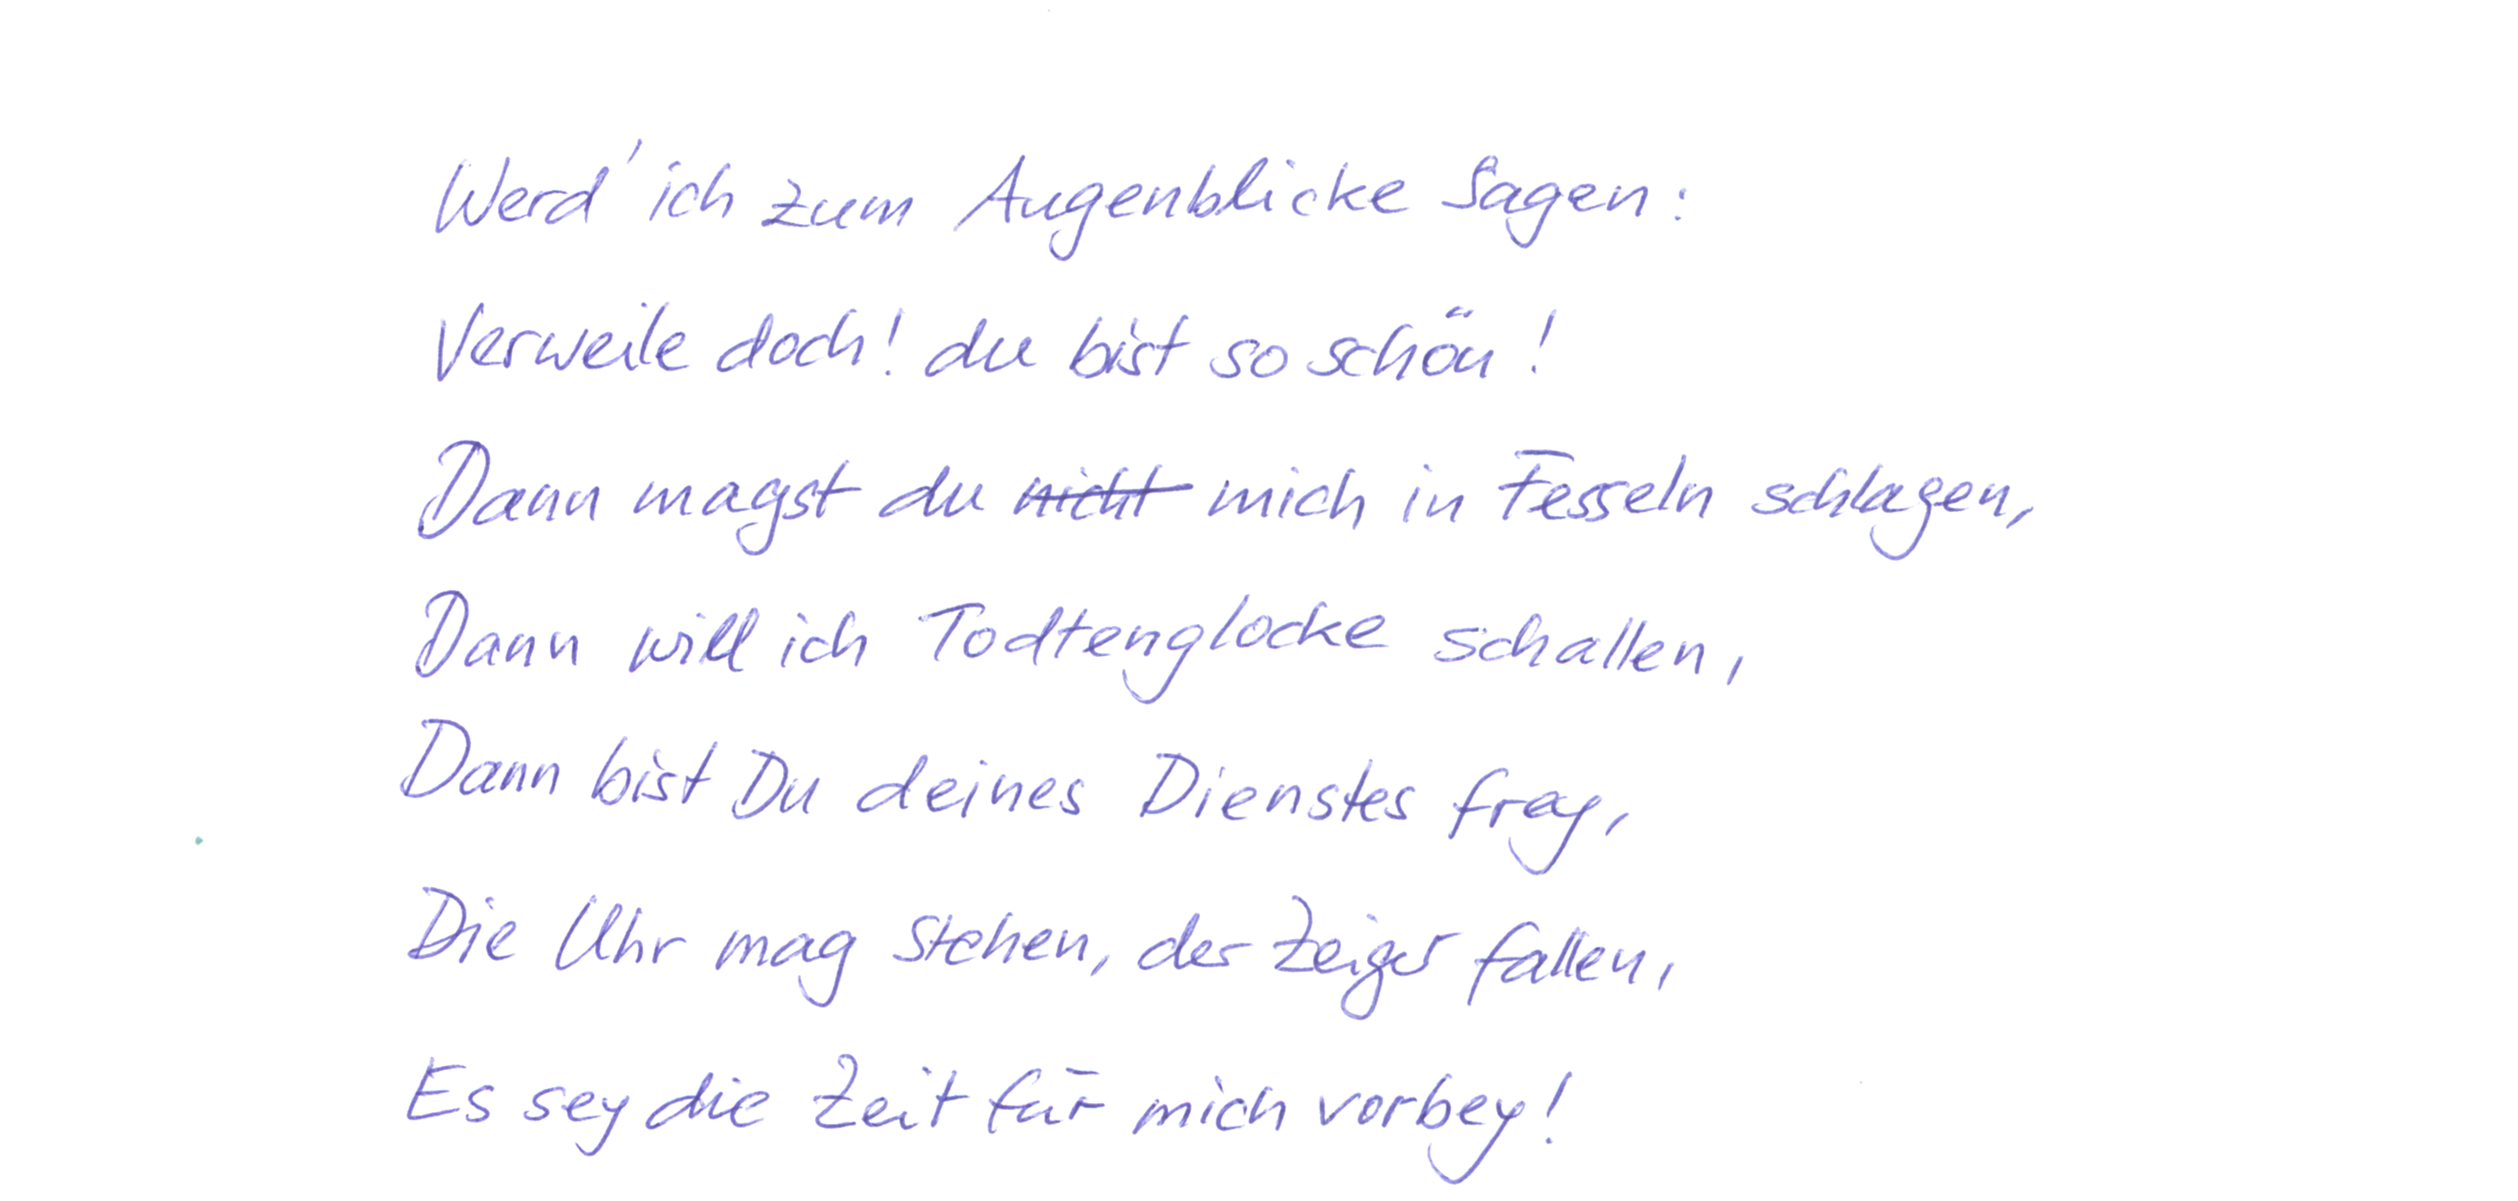 Werd' ich zum Augenblicke sagen:
Verweile doch! du bist so schön!
Dann magst du ~~nicht~~ mich in Fesseln schlagen,
Dann will ich Todtenglocke schallen,
Dann bist Du deines Dienstes frey,
Die Uhr mag stehen, der Zeiger fallen,
Es sey die Zeit für mich vorbey!